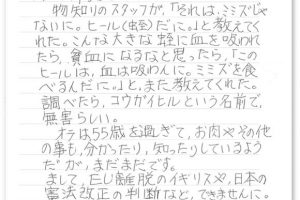 物知りのスタッフが、「それは、ミミズじゃ
ないに。ヒール(蛭)だに。」と教えてく
れた。こんな大きな蛭に血を吸われ
たら、貧血になるなと思ったら、「この
ヒールは、血は吸わんに。ミミズを食
べるんだに。」と、また教えてくれた。
調べたら、コウガイヒルという名前で、
無害らしい。
オラは55歳を過ぎて、お肉やその他
の事も、分かったり、知ったりしているよう
だが、まだまだです。
まして、EU離脱のイギリスや、日本の
憲法改正の判断など、できませんに。